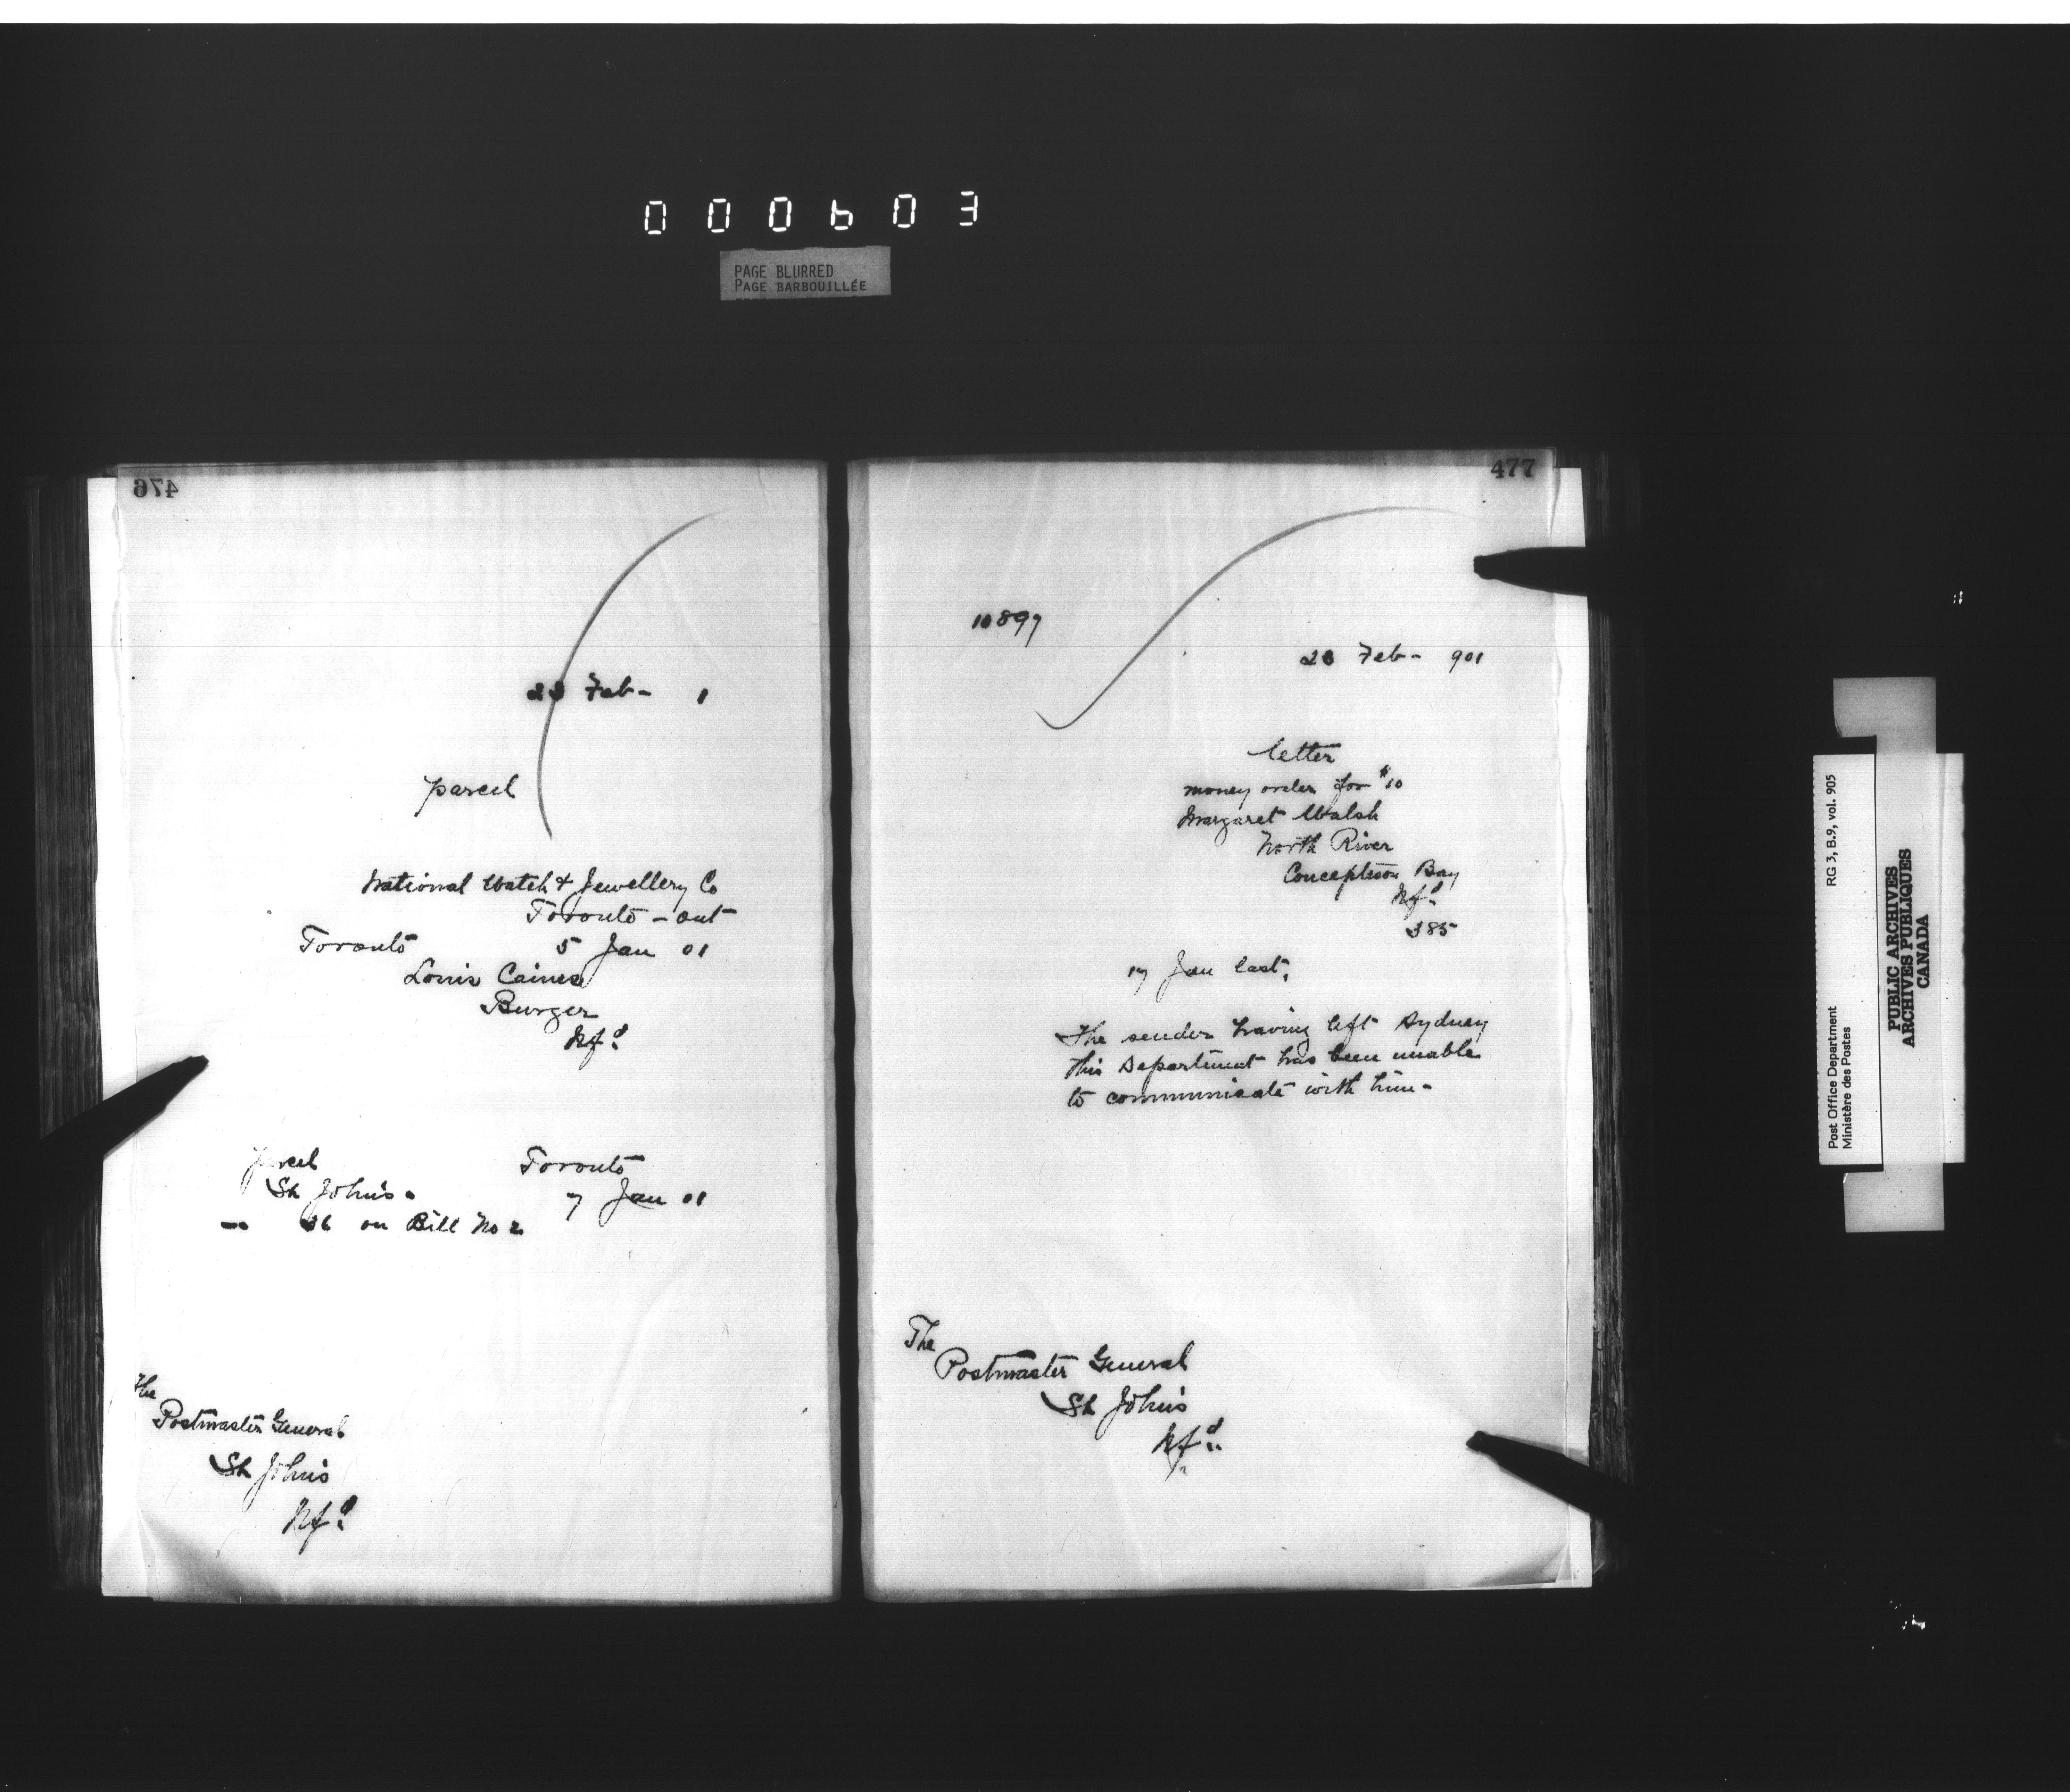 000603
PAGE BLURRED
PAGE BARBOUILLÉE
476
Feb - 1
parcel
National Watch & Jewellery Co
Toronto - Ont
Toronto 5 Jan 01
Louis Caines
Burger
Nfd
parcel Toronto
St John's. 7 Jan 01
36 on Bill No 2
The
Postmaster General
St John's
Nfd
477
10897
23 Feb - 901
letter
money order for $10
Margaret Walsh
North River
Conception Bay
Nfd
385
17 Jan last.
The sender having left Sydney
this Department has been unable
to communicate with him -
The
Postmaster General
St John's
Nfd
RG 3, B.9, vol. 905
Post Office Department
Ministère des Postes
PUBLIC ARCHIVES
ARCHIVES PUBLIQUES
CANADA